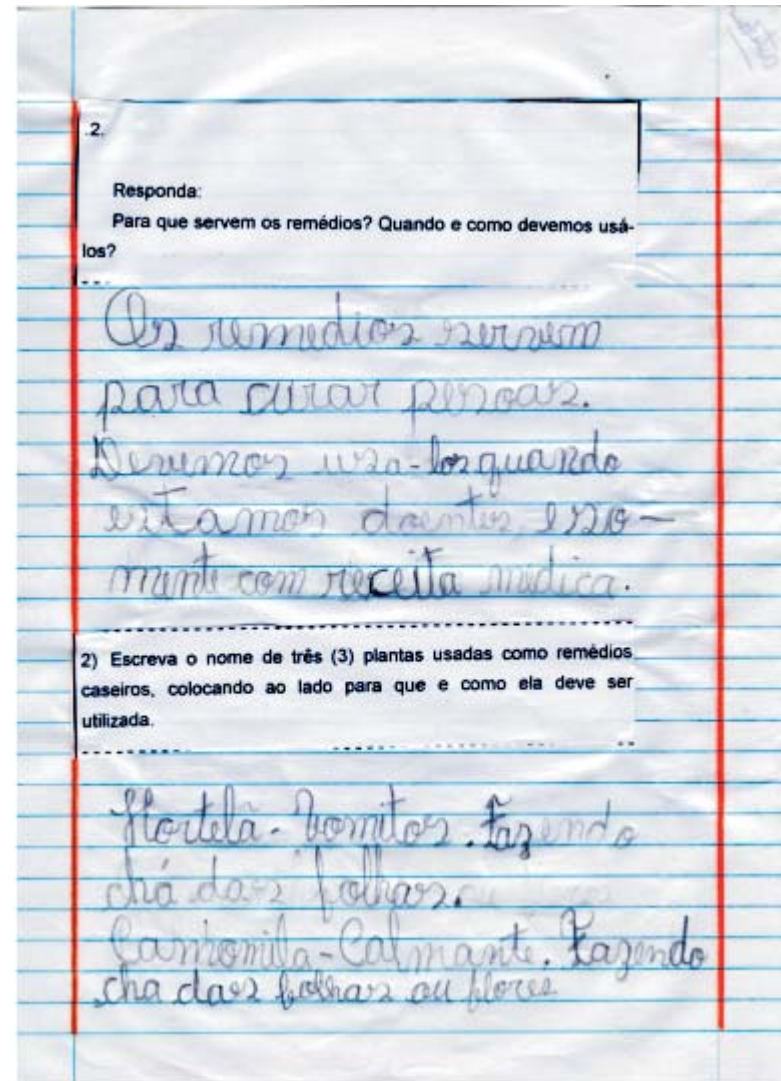 .2.
Responda:
Para que servem os remédios? Quando e como devemos usá-
los?
Os remedios servem
para curar pessoas.
Devemos usa-los quando
estamos doentes e so-
mente com receita medica.
2) Escreva o nome de três (3) plantas usadas como remédios
caseiros, colocando ao lado para que e como ela deve ser
utilizada.
Hortelã - Vomitos. Fazendo
chá das folhas.
Camomila - Calmante. Fazendo
cha das folhas ou flores